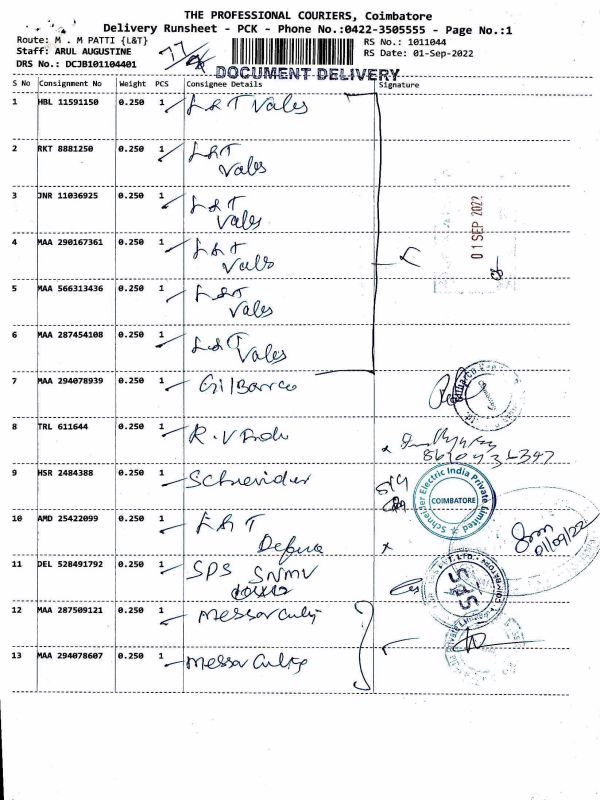 THE PROFESSIONAL COURIERS, Coimbatore
Delivery Runsheet - PCK - Phone No.:0422-3505555 - Page No.:1
Route: M . M PATTI {L&T}
RS No.: 1011044
Staff: ARUL AUGUSTINE
RS Date: 01-Sep-2022
DRS No.: DCJB101104401
77
DOCUMENT DELIVERY
S No Consignment No Weight PCS Consignee Details Signature
1 HBL 11591150 0.250 1 L&T Vales
2 RKT 8881250 0.250 1 L&T
Vales
3 JNR 11036925 0.250 1 L&T
Vales
01 SEP 2022
4 MAA 290167361 0.250 1 L&T
Vales
5 MAA 566313436 0.250 1 L&T
Vales
6 MAA 287454108 0.250 1 L&T Vales
7 MAA 294078939 0.250 1 Gilbarco
8 TRL 611644 0.250 1
9 HSR 2484388 0.250 1 Schneider
Schneider Electric India Private Limited
COIMBATORE
10 AMD 25422099 0.250 1 L&T
01/09/22
11 DEL 528491792 0.250 1 SPS SNMV
12 MAA 287509121 0.250 1
13 MAA 294078607 0.250 1